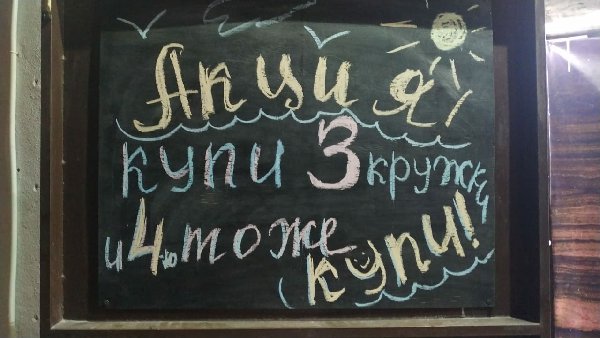 Акция
купи 3 кружки
и 4-ю тоже
купи!